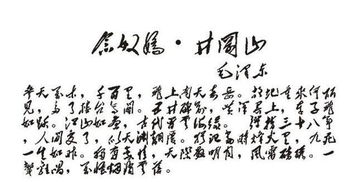 念奴娇·井冈山
毛泽东
参天万木，千百里，飞上南天奇岳。故地重来何所
见，多了楼台亭阁。五井碑前，黄洋界上，车子飞
如跃。江山如画，古代曾云海绿。弹指三十八年
，人间变了，似天渊翻覆。犹记当时烽火里，九死
一生如昨。独有豪情，天际悬明月，风雷磅礴。一
声鸡唱，万怪烟消云落。